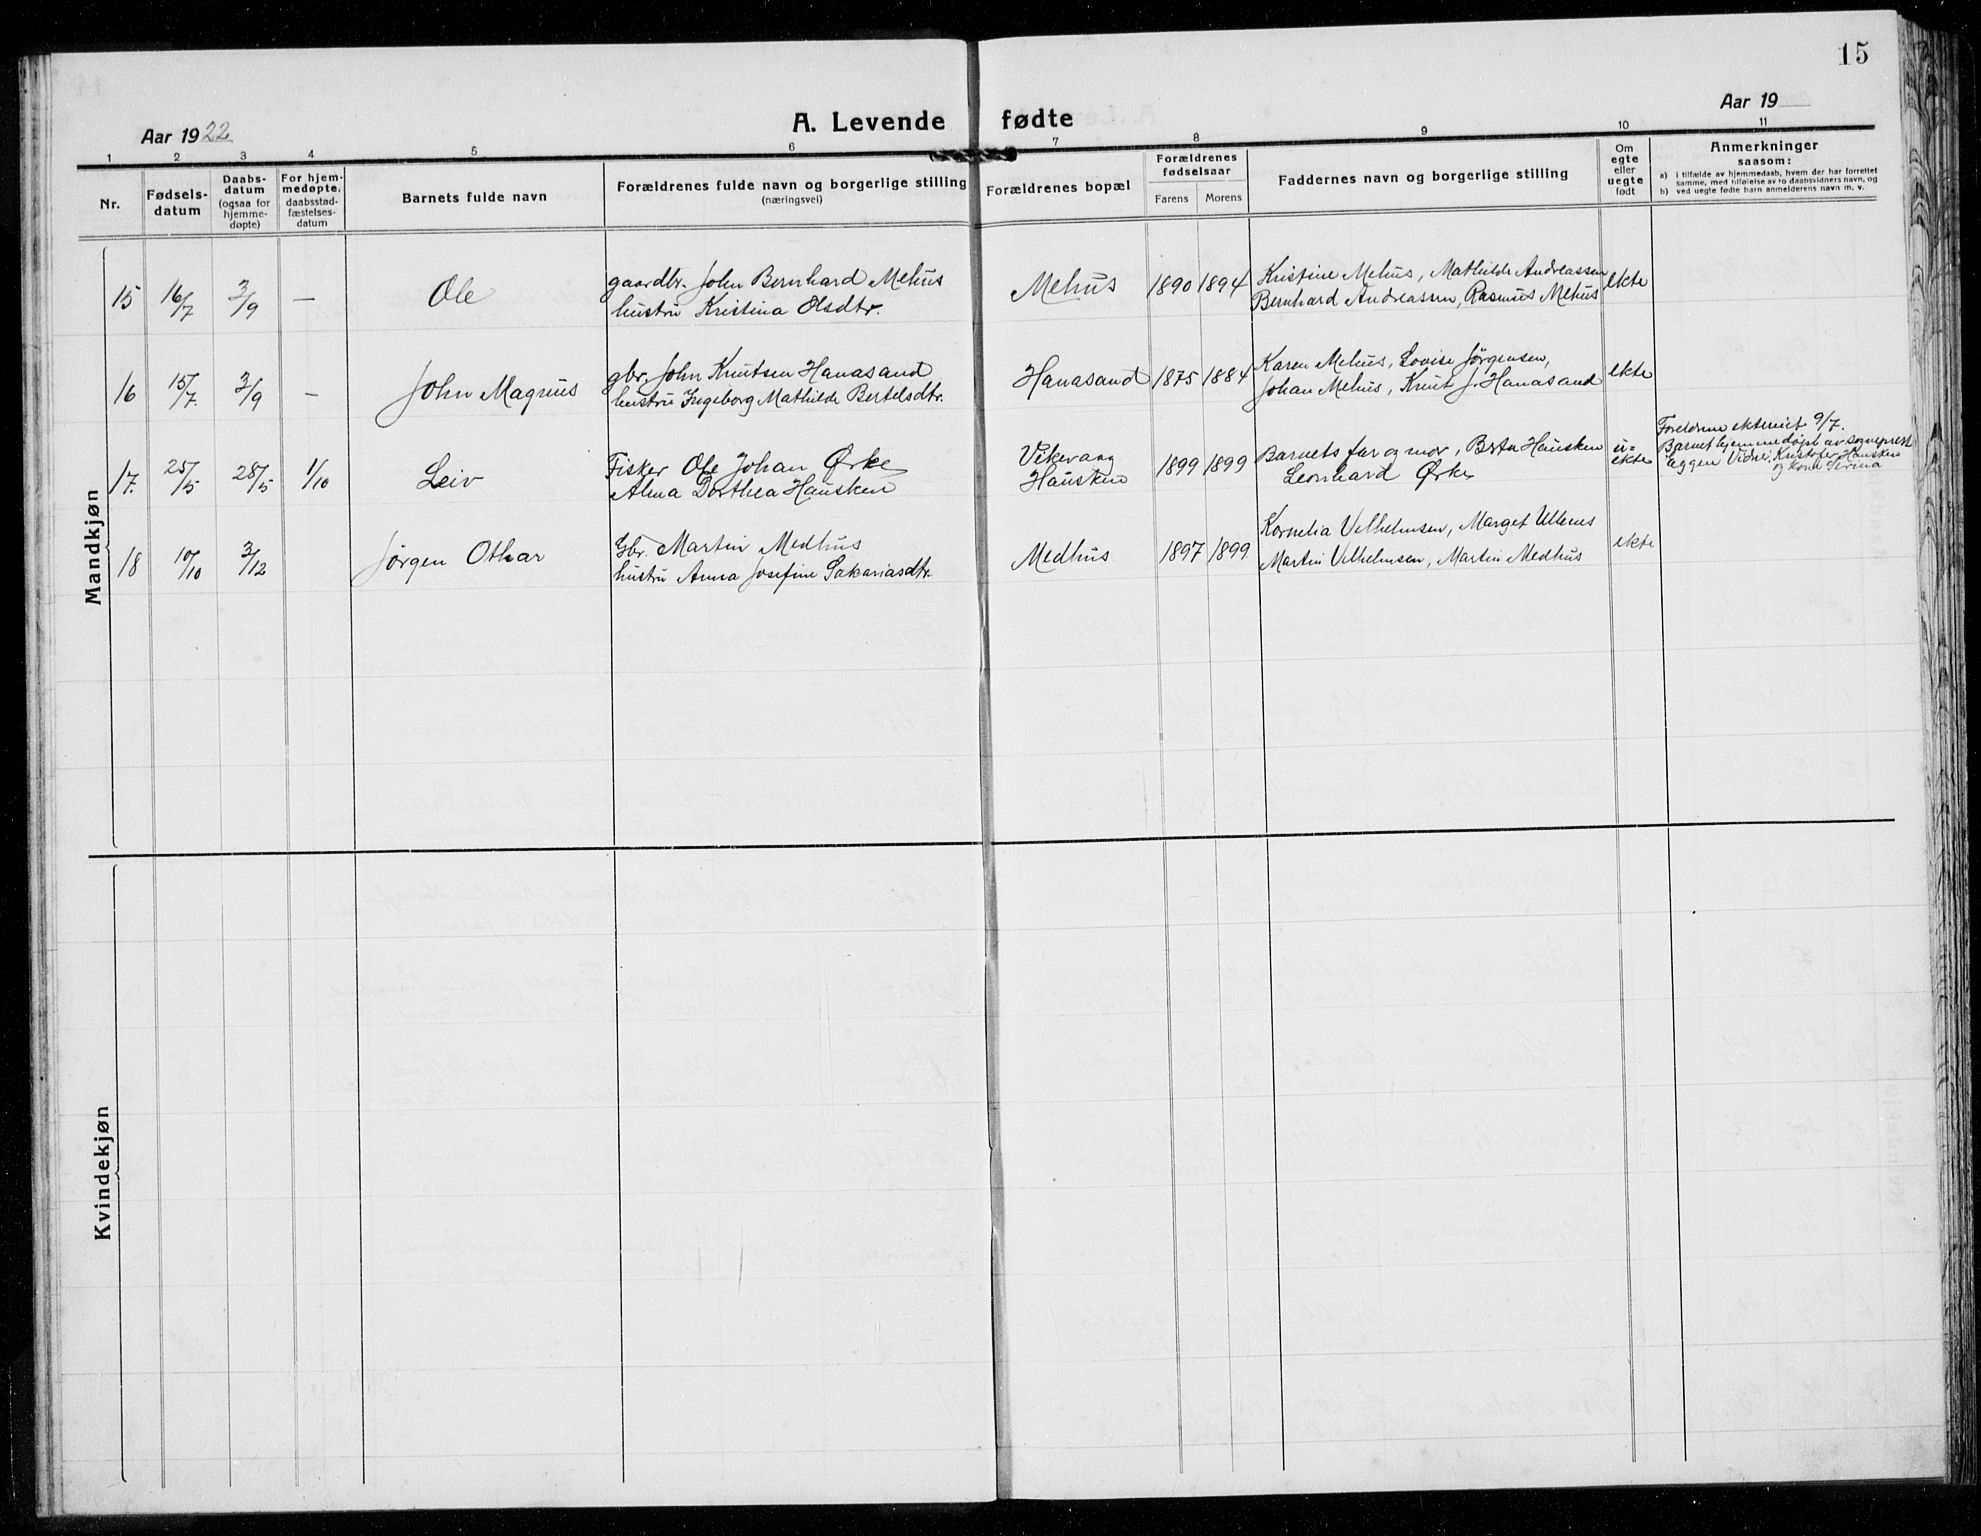 15
Aar 1922
A. Levende fødte
Aar 19
1 2 3 4 5 6 7 8 9 10 11
Nr.
Fødsels-
datum
Daabs-
datum
(ogsaa for
hjemme-
døpte)
For hjem-
medøpte,
daabsstad-
fæstelses-
datum
Barnets fulde navn
Forældrenes fulde navn og borgerlige stilling
(næringsvei)
Forældrenes bopæl
Forældrenes
fødselsaar
Farens Morens
Faddernes navn og borgerlige stilling
Om
egte
eller
uegte
født
Anmerkninger
saasom:
a) i tilfælde av hjemmedaab, hvem der har forrettet
samme, med tilføielse av to daabsvidners navn, og
b) ved uegte fødte barn anmelderens navn m. v.
Mandkjøn
15 16/7 3/9 — Ole
gaardbr. John Bernhard Mehus
hustru Kristina Olsdtr.
Mehus 1890 1894
Kristine Mehus, Mathilde Andreassen
Bernhard Andreassen, Rasmus Mehus
ekte
16 15/7 3/9 - John Magnus
gbr. John Knutsen Hanasand
hustru Ingeborg Mathilde Bertelsdtr.
Hanasand 1875 1884
Karen Mehus, Lovise Jørgensen,
Johan Mehus, Knut J. Hanasand
ekte
17. 25/5 28/5 1/10 Leiv
Fisker Ole Johan Ørke
Alma Dorthea Hausken
Vikevaag
Hausken
1899 1899
Barnets far og mor, Berta Hausken
Leonhard Ørke
u-
ekte
Foreldrene ekteviet 9/7.
Barnet hjemmedøpt av sogneprest
Eggen Vidne: Kristofer Hausken
og kone Serina
18 10/10 3/12 Jørgen Othar
Gbr. Martin Medhus
hustru Anna Josefine Sakariasdtr.
Medhus 1897 1899
Kornelia Vilhelmsen, Marget Ullenes
Martin Vilhelmsen, Martin Medhus
ekte
Kvindekjøn